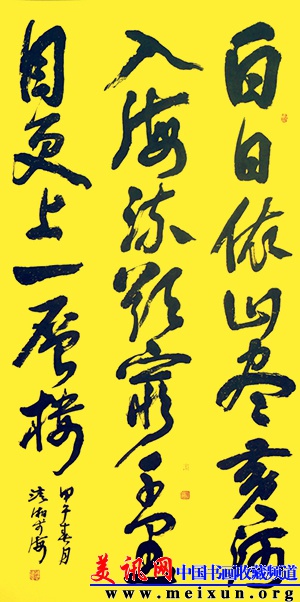 白日依山尽黄河
入海流欲窮千里
目更上一层楼
甲午春月
美讯网 中国书画收藏频道
www.meixun.org